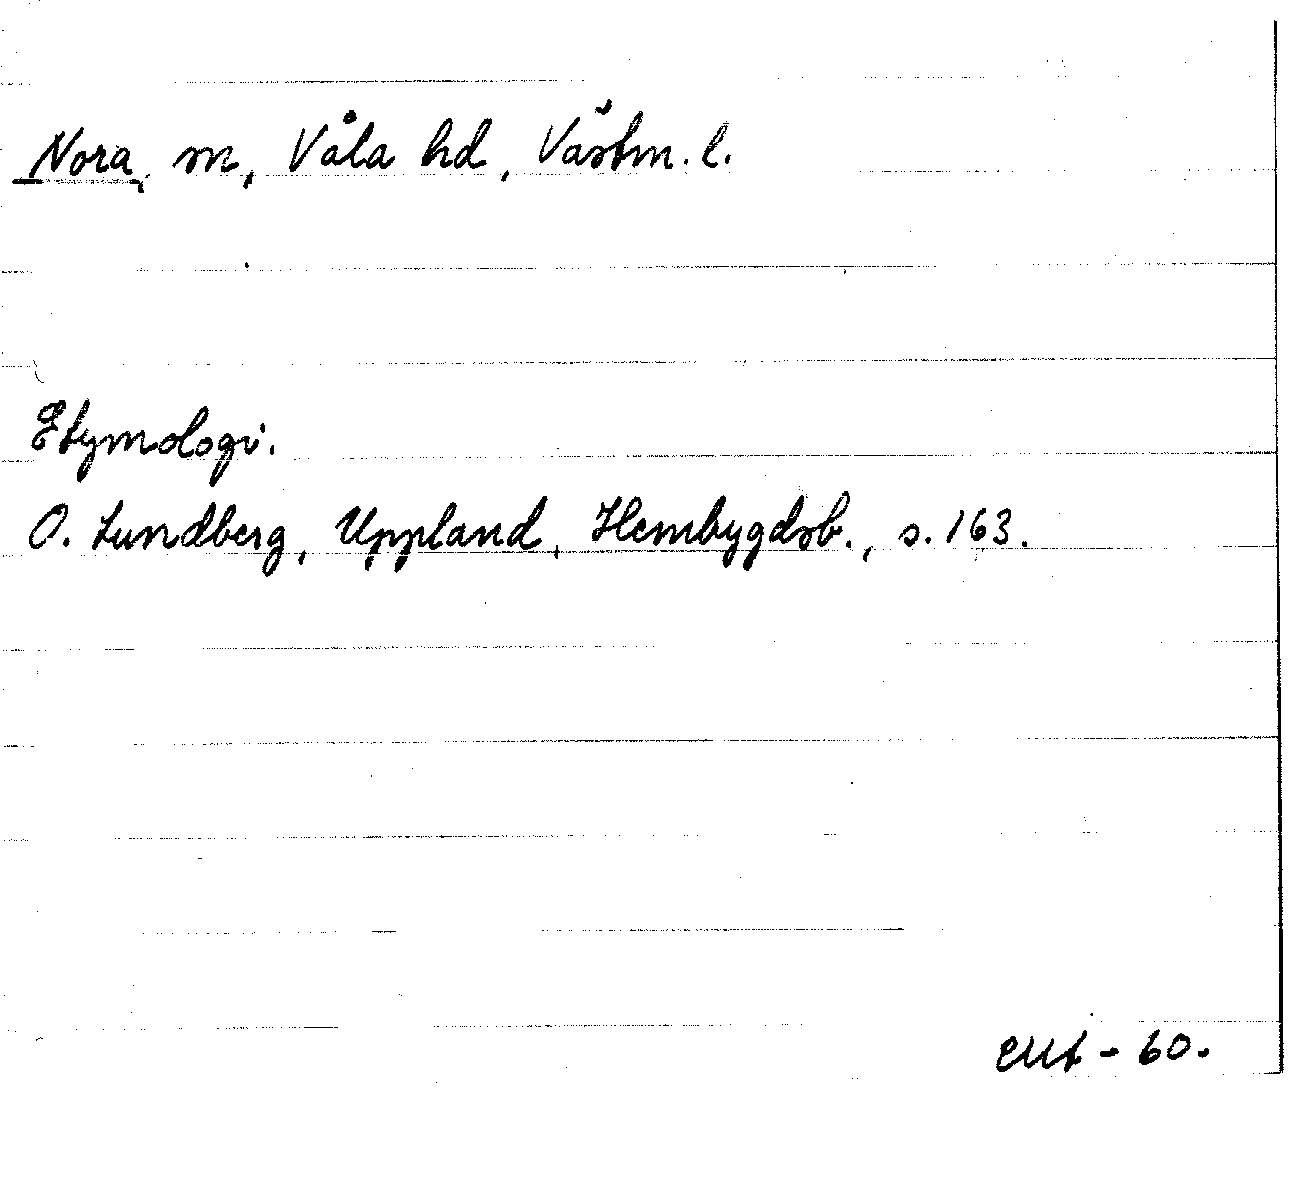 Nora, sn, Våla hd, Västm. l.
Etymologi.
O. Lundberg, Uppland, Hembygdsb., s. 163.
- 60.